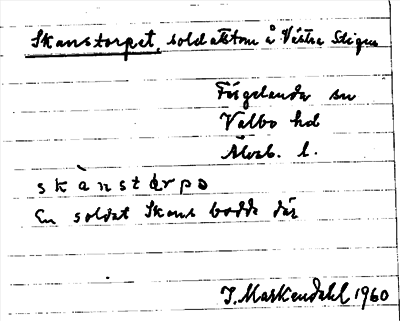 Skanstorpet, soldattorp å Västra Stigen
Färgelanda sn
Valbo hd
Älvsb. l.
skànstǿrpə
En soldat Skans bodde där
I. Markendahl 1960